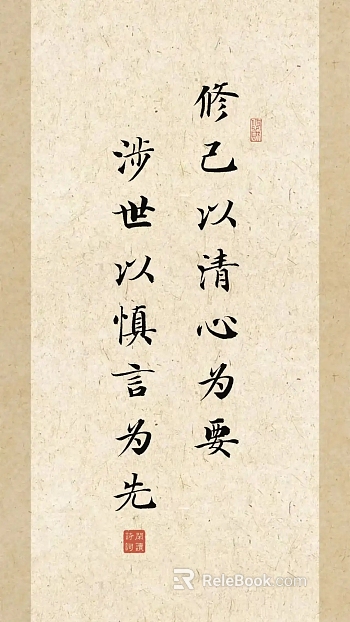 修己以清心为要
涉世以慎言为先
ReleBook.com